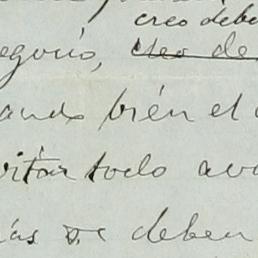 creo debe
egocio, creo de
ando bién el
vitar todo av
ías se deben